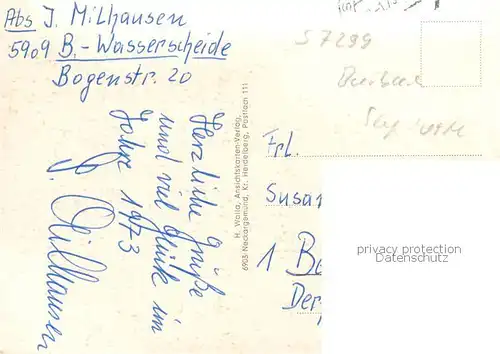 Abs J. Milhausen
5909 B.-Wasserscheide
Bogenstr. 20
Herzliche Grüße
und viel Glück im
Jahre 1973
J. Milhausen
H. Walla, Ansichtskarten-Verlag,
6903 Neckargemünd, Kr. Heidelberg, Postfach 111
57299
Burbach
Frl.
Susan
1 Be
Der
privacy protection
Datenschutz